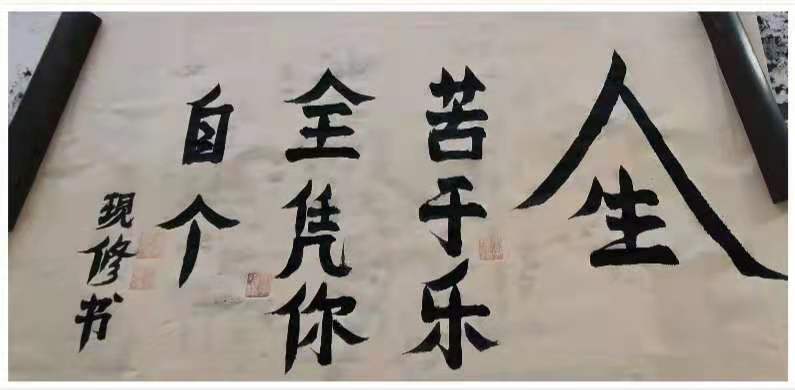 人生
苦于乐
全凭你
自个
現修书